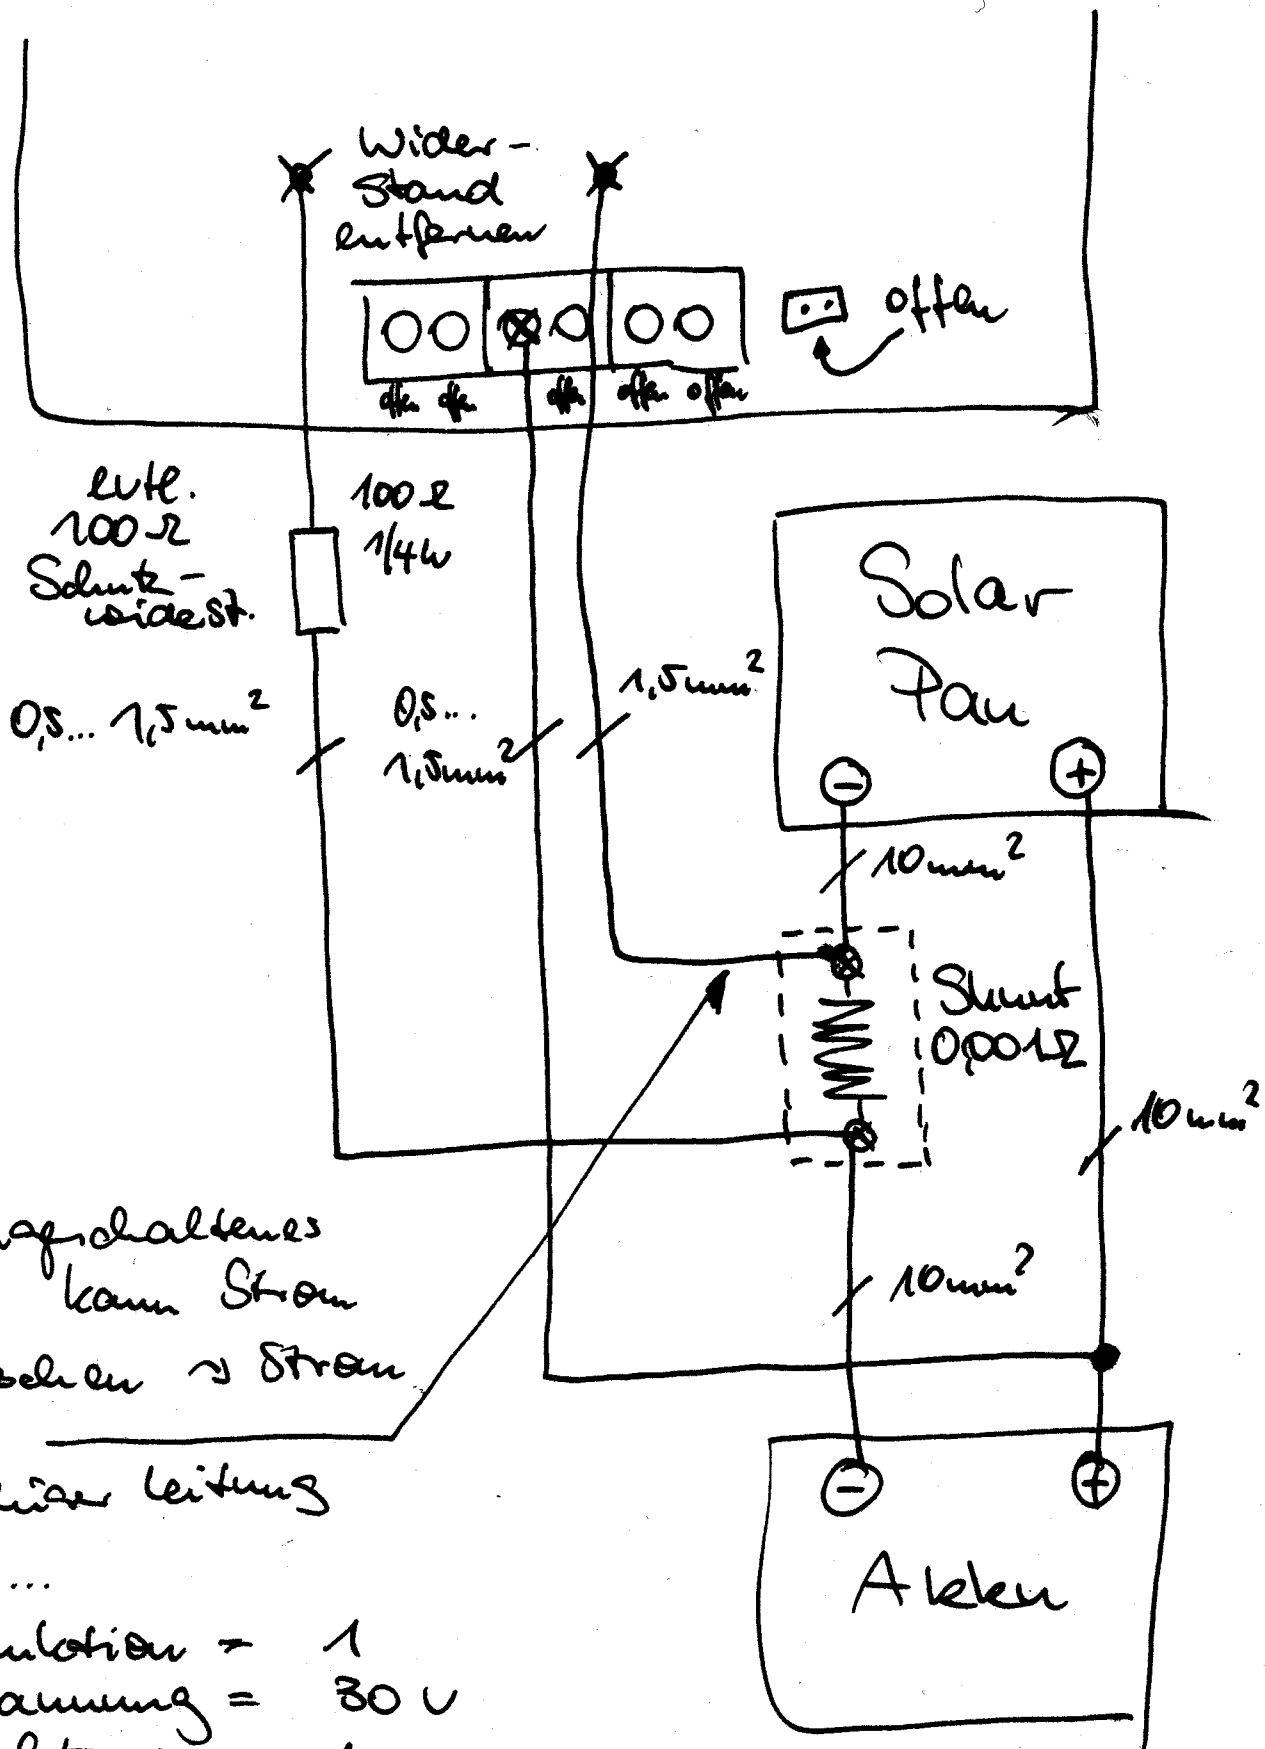 Wider-
Stand
entfernen
offen
offen offen offen offen offen
evtl.
100 Ω
Schutz-
widerst.
100 Ω
1/4 W
0,5... 1,5mm²
0,5...
1,5mm²
1,5mm²
Solar
Pan
- +
10mm²
Shunt
0,001Ω
10mm²
10mm²
kann Strom
→ Strom
Leitung
...
= 1
= 30 V
- +
Akku